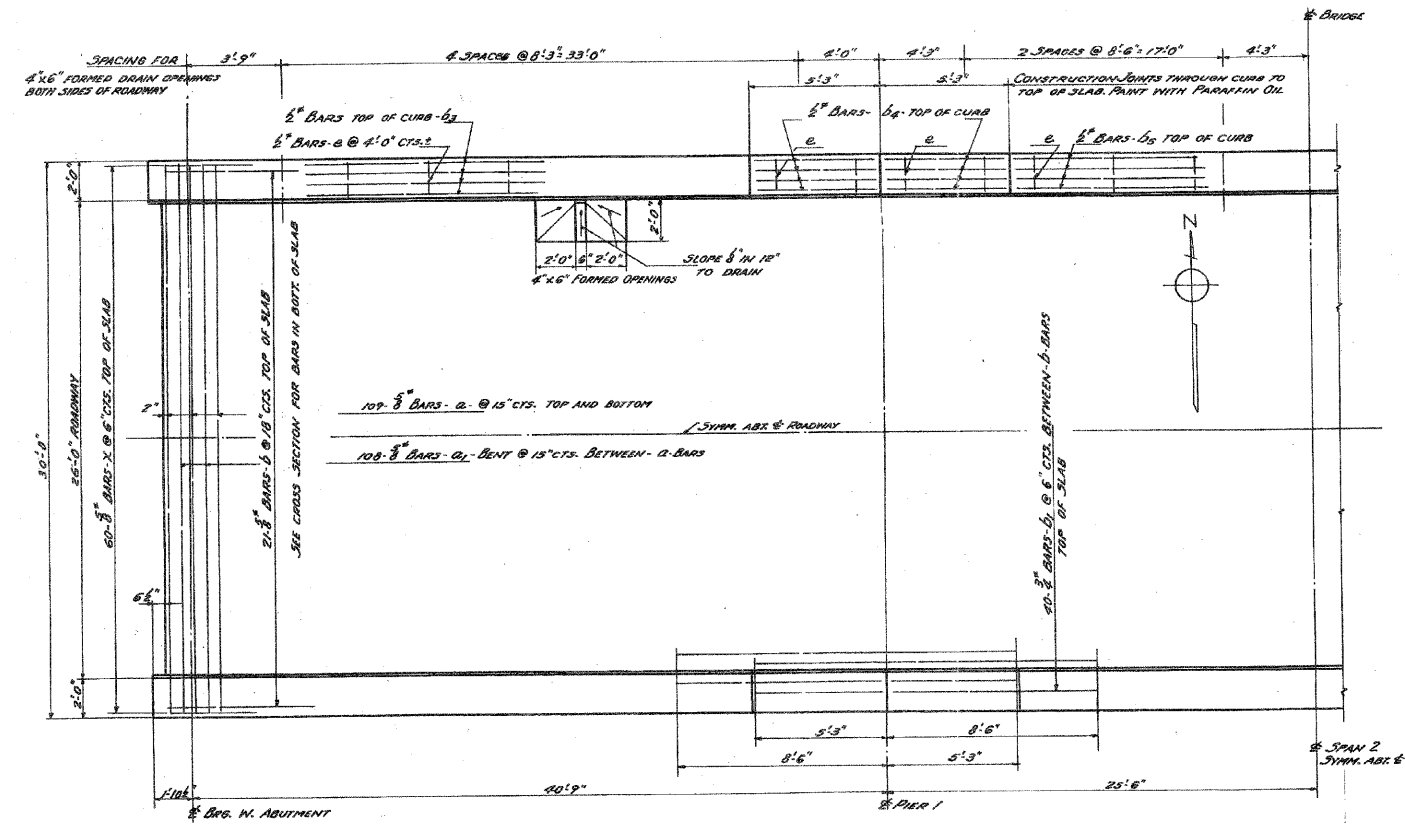 ℄ BRIDGE
SPACING FOR
4"x6" FORMED DRAIN OPENINGS
BOTH SIDES OF ROADWAY
3'-9"
4 SPACES @ 8'-3"= 33'-0"
4'-0"
4'-3"
2 SPACES @ 8'-6"= 17'-0"
4'-3"
5'-3"
5'-3"
CONSTRUCTION JOINTS THROUGH CURB TO
TOP OF SLAB. PAINT WITH PARAFFIN OIL
½"⌀ BARS TOP OF CURB-b3
½"⌀ BARS-e @ 4'-0" CTS.±
½"⌀ BARS- b4-TOP OF CURB
e
e
e
½"⌀ BARS-b5 TOP OF CURB
2'-0"
2'-0"
2'-0"
6"
2'-0"
4"x6" FORMED OPENINGS
SLOPE ⅛" IN 12"
TO DRAIN
N
30'-0"
26'-0" ROADWAY
60-⅝"⌀ BARS-X @ 6"CTS. TOP OF SLAB
21-⅝"⌀ BARS-b @ 18"CTS. TOP OF SLAB
SEE CROSS SECTION FOR BARS IN BOTT. OF SLAB
2"
109-⅝"⌀ BARS- a- @ 15"CTS. TOP AND BOTTOM
SYMM. ABT. ℄ ROADWAY
108-⅝"⌀ BARS-a1-BENT @ 15"CTS. BETWEEN- a-BARS
40-¾"⌀ BARS-b1 @ 6" CTS. BETWEEN-b-BARS
TOP OF SLAB
6½"
2'-0"
5'-3"
8'-6"
8'-6"
5'-3"
1'-10½"
40'-9"
25'-6"
℄ BRG. W. ABUTMENT
℄ PIER 1
℄ SPAN 2
SYMM. ABT. ℄